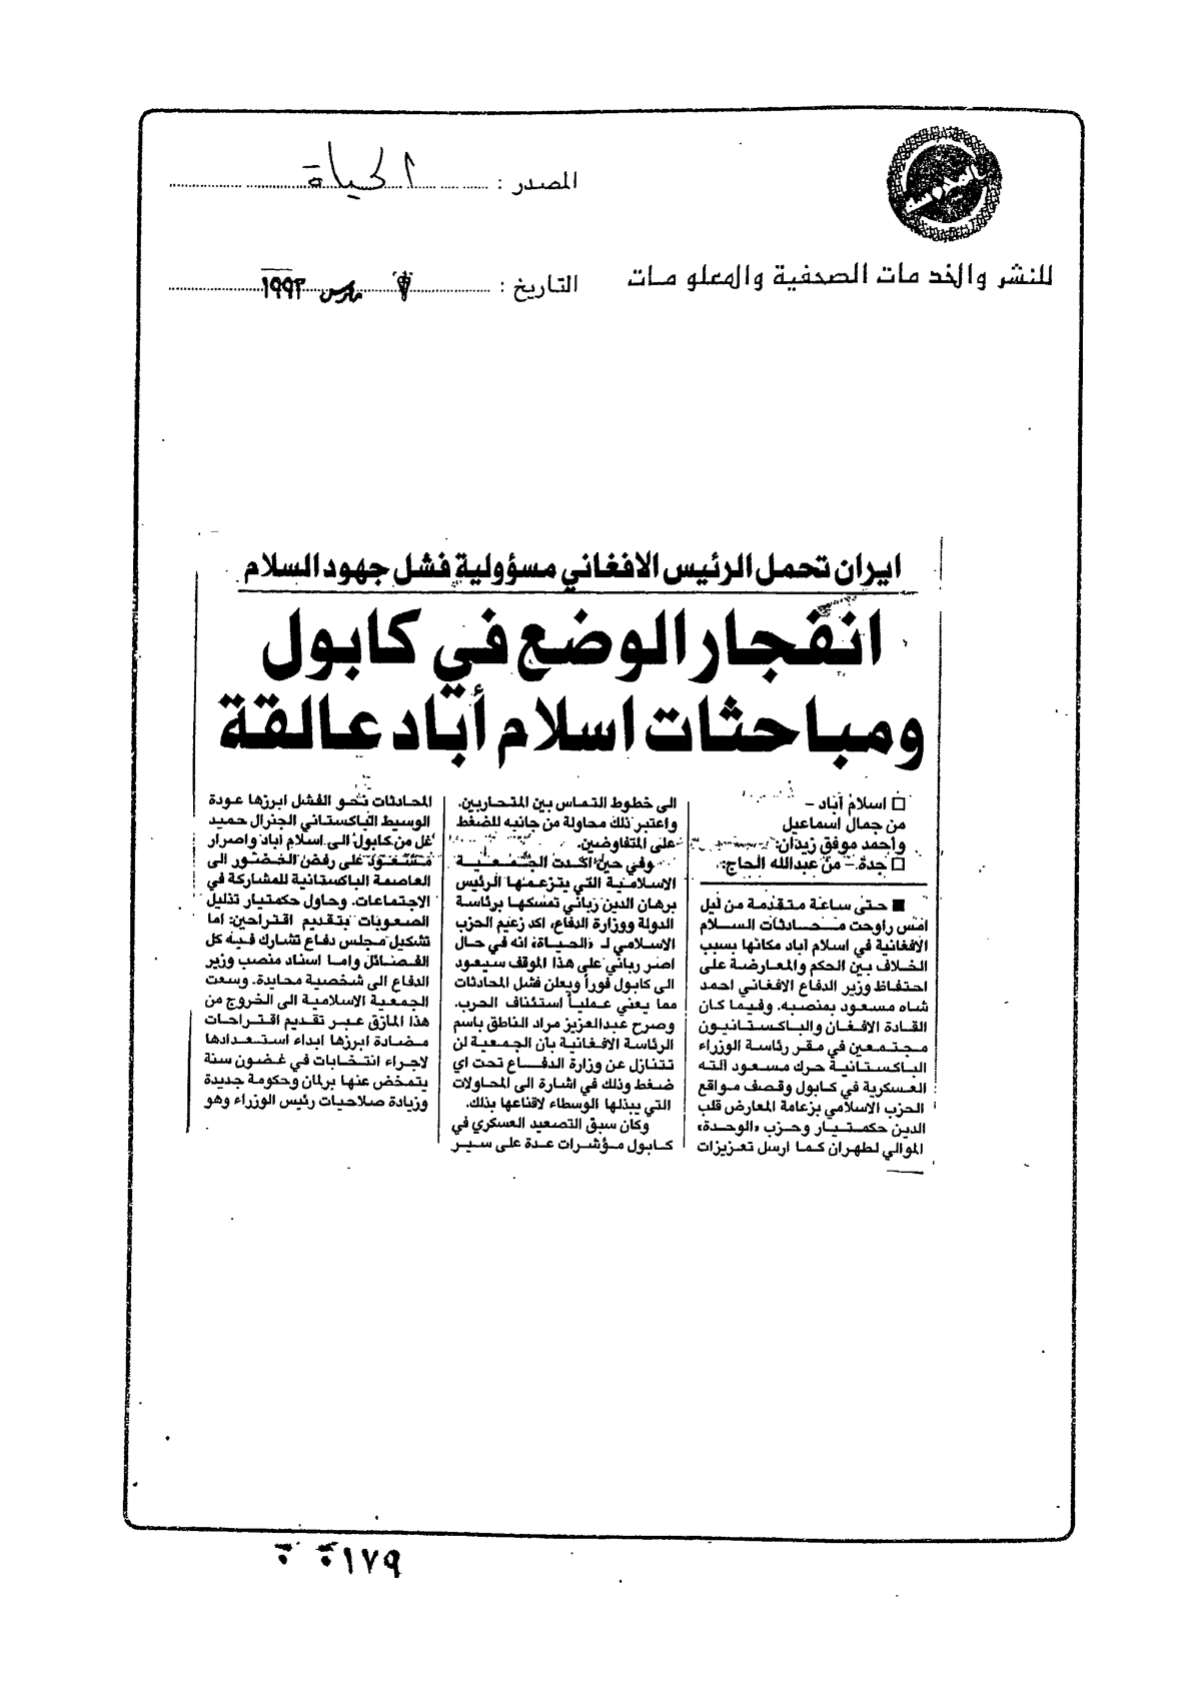 المصدر : الحياة
للنشر والخدمات الصحفية والمعلومات
التاريخ : ٧ مارس ١٩٩٣
ايران تحمل الرئيس الافغاني مسؤولية فشل جهود السلام
انفجار الوضع في كابول
ومباحثات اسلام أباد عالقة
□ اسلام آباد -
من جمال اسماعيل
وأحمد موفق زيدان:
□ جدة - من عبدالله الحاج:
■ حتى ساعة متقدمة من ليل
امس راوحت محادثات السلام
الافغانية في اسلام آباد مكانها بسبب
الخلاف بين الحكم والمعارضة على
احتفاظ وزير الدفاع الافغاني احمد
شاه مسعود بمنصبه. وفيما كان
القادة الافغان والباكستانيون
مجتمعين في مقر رئاسة الوزراء
الباكستانية حرك مسعود آلته
العسكرية في كابول وقصف مواقع
الحزب الاسلامي بزعامة المعارض قلب
الدين حكمتيار وحزب «الوحدة»
الموالي لطهران كما ارسل تعزيزات
الى خطوط التماس بين المتحاربين.
واعتبر ذلك محاولة من جانبه للضغط
على المتفاوضين.
وفي حين اكدت الجمعية
الاسلامية التي يتزعمها الرئيس
برهان الدين رباني تمسكها برئاسة
الدولة ووزارة الدفاع، اكد زعيم الحزب
الاسلامي لـ «الحياة» انه في حال
اصر رباني على هذا الموقف سيعود
الى كابول فوراً ويعلن فشل المحادثات
مما يعني عملياً استئناف الحرب.
وصرح عبدالعزيز مراد الناطق باسم
الرئاسة الافغانية بأن الجمعية لن
تتنازل عن وزارة الدفاع تحت اي
ضغط وذلك في اشارة الى المحاولات
التي يبذلها الوسطاء لاقناعها بذلك.
وكان سبق التصعيد العسكري في
كابول مؤشرات عدة على سير
المحادثات نحو الفشل ابرزها عودة
الوسيط الباكستاني الجنرال حميد
غل من كابول الى اسلام آباد واصرار
مسعود على رفض الحضور الى
العاصمة الباكستانية للمشاركة في
الاجتماعات. وحاول حكمتيار تذليل
الصعوبات بتقديم اقتراحين: اما
تشكيل مجلس دفاع تشارك فيه كل
الفصائل واما اسناد منصب وزير
الدفاع الى شخصية محايدة. وسعت
الجمعية الاسلامية الى الخروج من
هذا المأزق عبر تقديم اقتراحات
مضادة ابرزها ابداء استعدادها
لاجراء انتخابات في غضون سنة
يتمخض عنها برلمان وحكومة جديدة
وزيادة صلاحيات رئيس الوزراء وهو
١٧٩